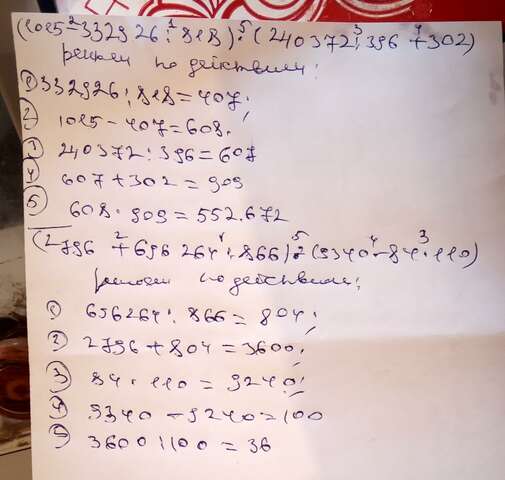 (1015 ²- 332926 ¹: 818) ⁵· (240372 ³: 396 ⁴+ 302)
решаем по действиям:
① 332926 : 818 = 407;
② 1015 - 407 = 608.
③ 240372 : 396 = 607
④ 607 + 302 = 909
⑤ 608 · 909 = 552.672
(2796 ²+ 696264 ¹: 866) ⁵: (9340 ⁴- 84 ³· 110)
решаем по действиям:
① 696264 : 866 = 804;
② 2796 + 804 = 3600;
③ 84 · 110 = 9240;
④ 9340 - 9240 = 100
⑤ 3600 : 100 = 36